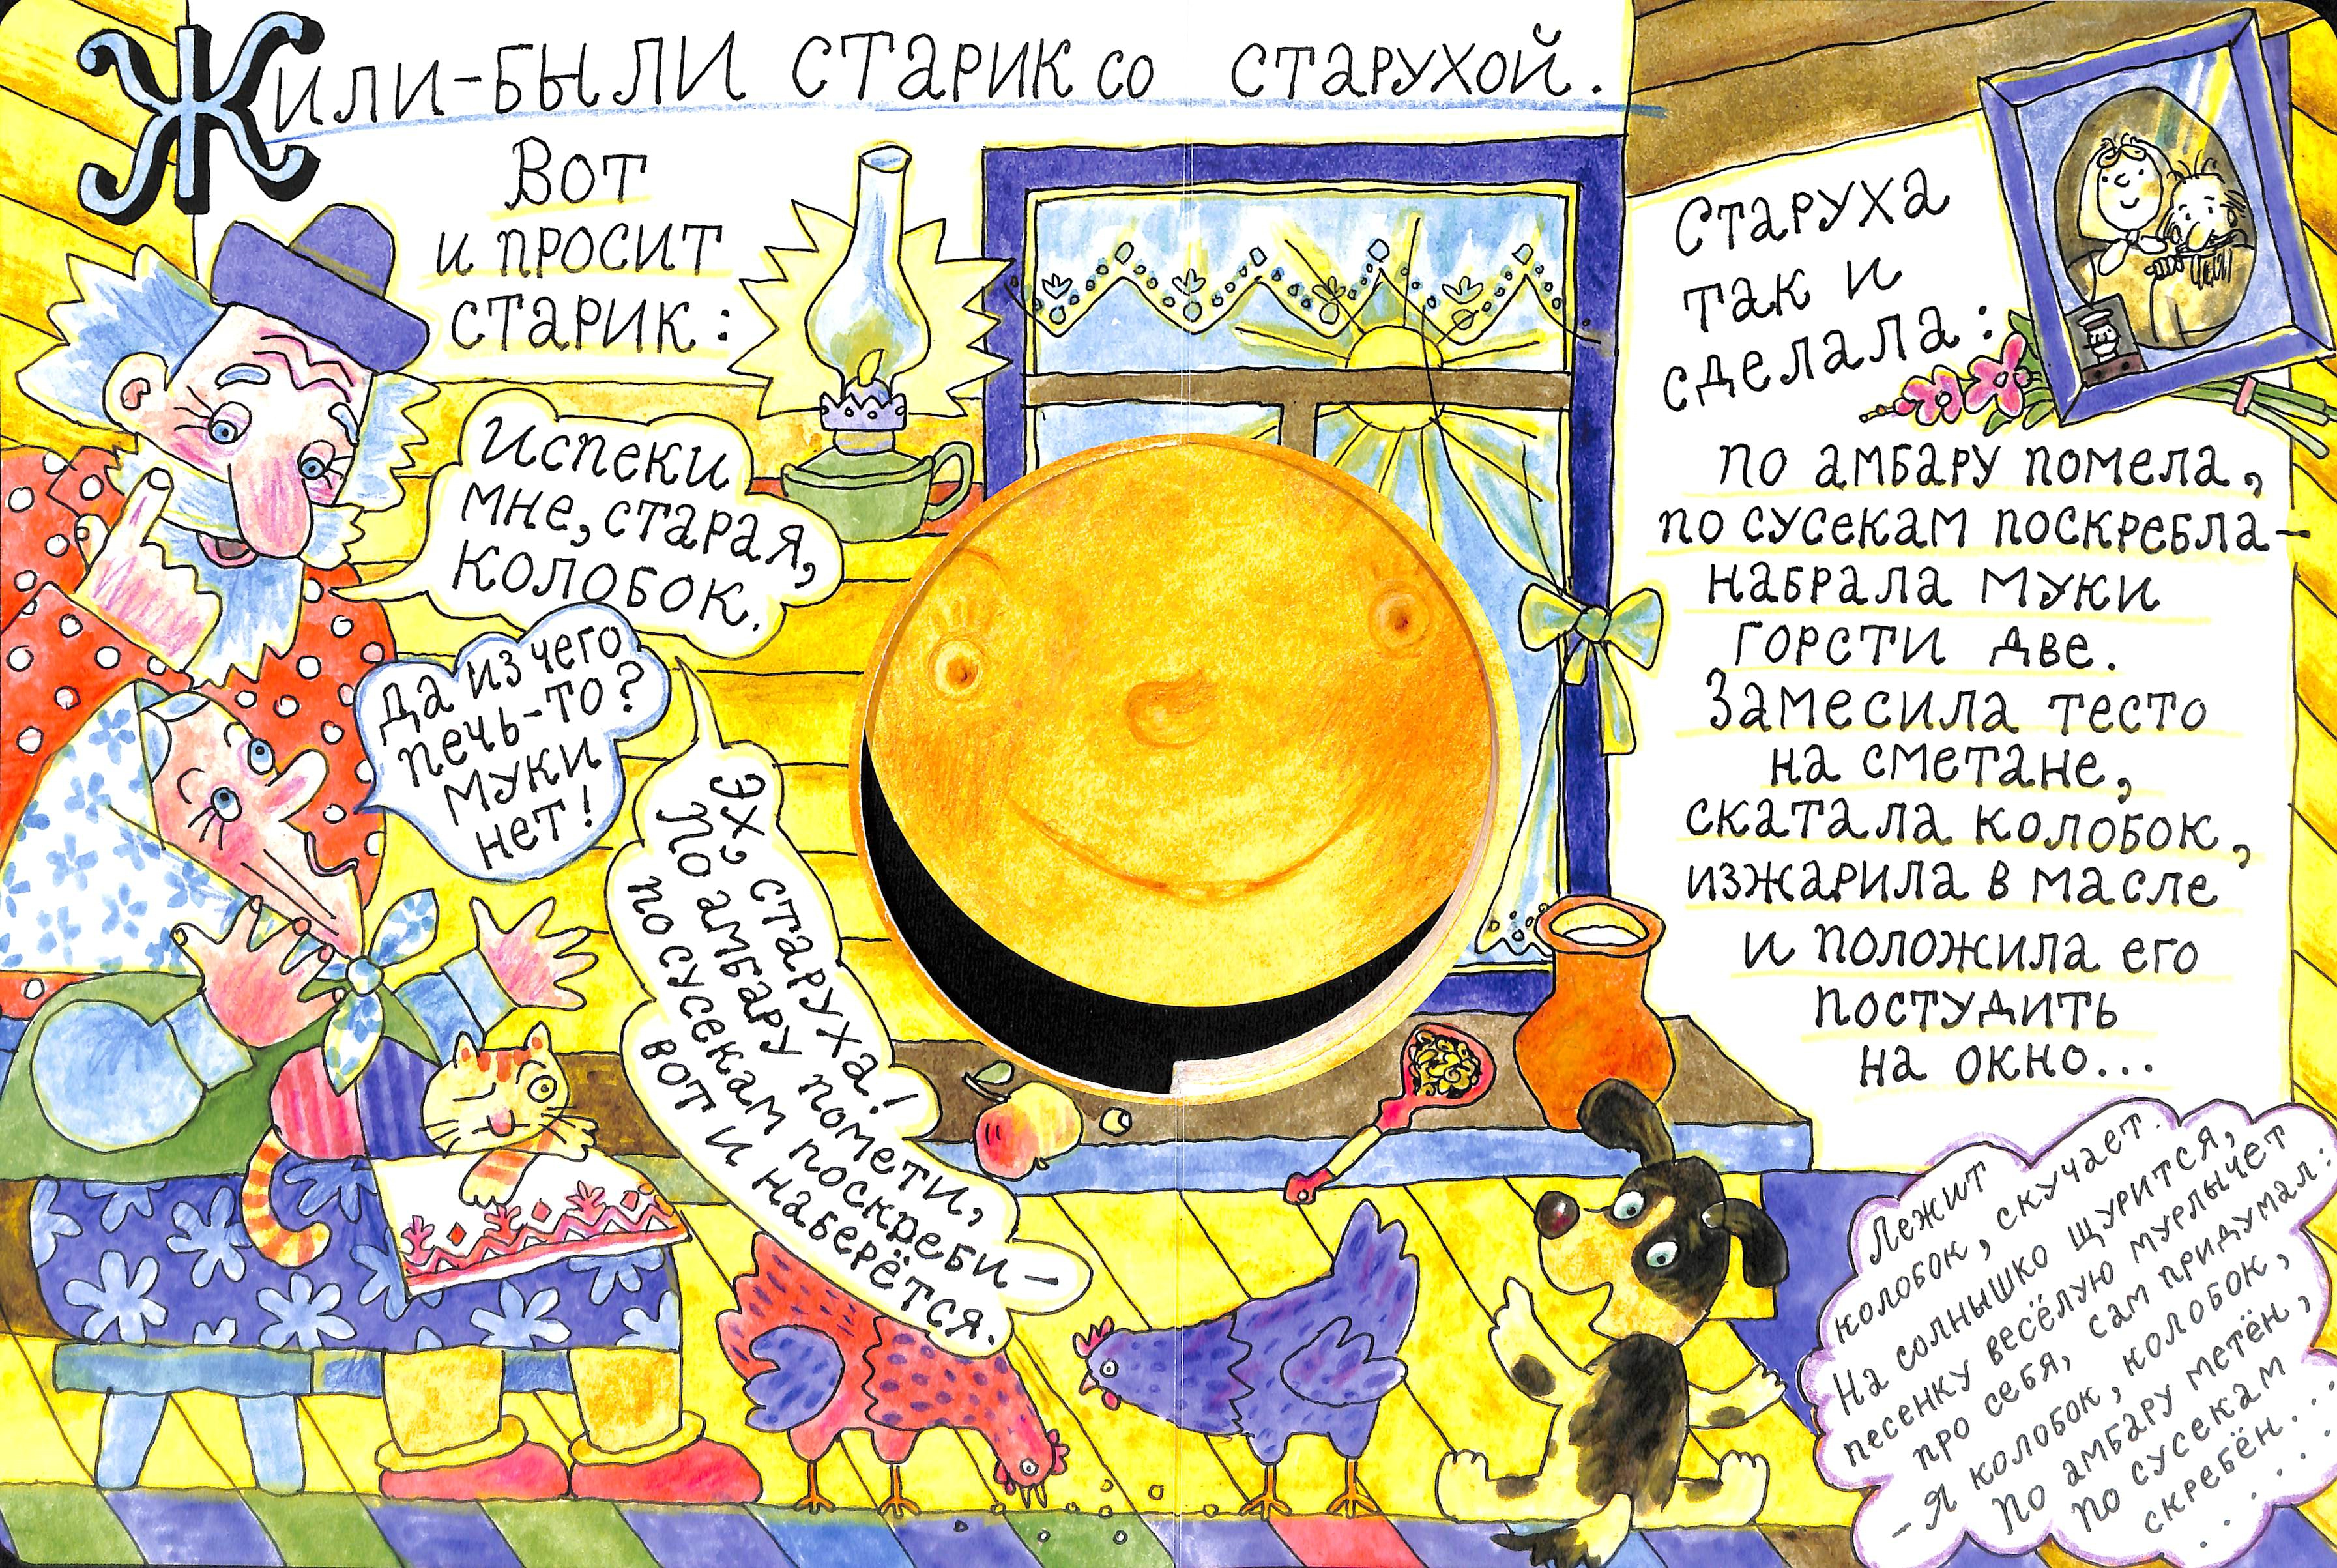 Жили-были старик со старухой.
Вот
и просит
старик:
Испеки
мне, старая,
колобок.
Да из чего
печь-то?
Муки
нет!
Эх, старуха!
По амбару помети,
по сусекам поскреби —
вот и наберётся.
Старуха
так и
сделала:
по амбару помела,
по сусекам поскребла —
набрала муки
горсти две.
Замесила тесто
на сметане,
скатала колобок,
изжарила в масле
и положила его
постудить
на окно...
Лежит
колобок, скучает.
На солнышко щурится,
песенку весёлую мурлычет
про себя, сам придумал:
— Я колобок, колобок,
По амбару метён,
По сусекам
скребён...